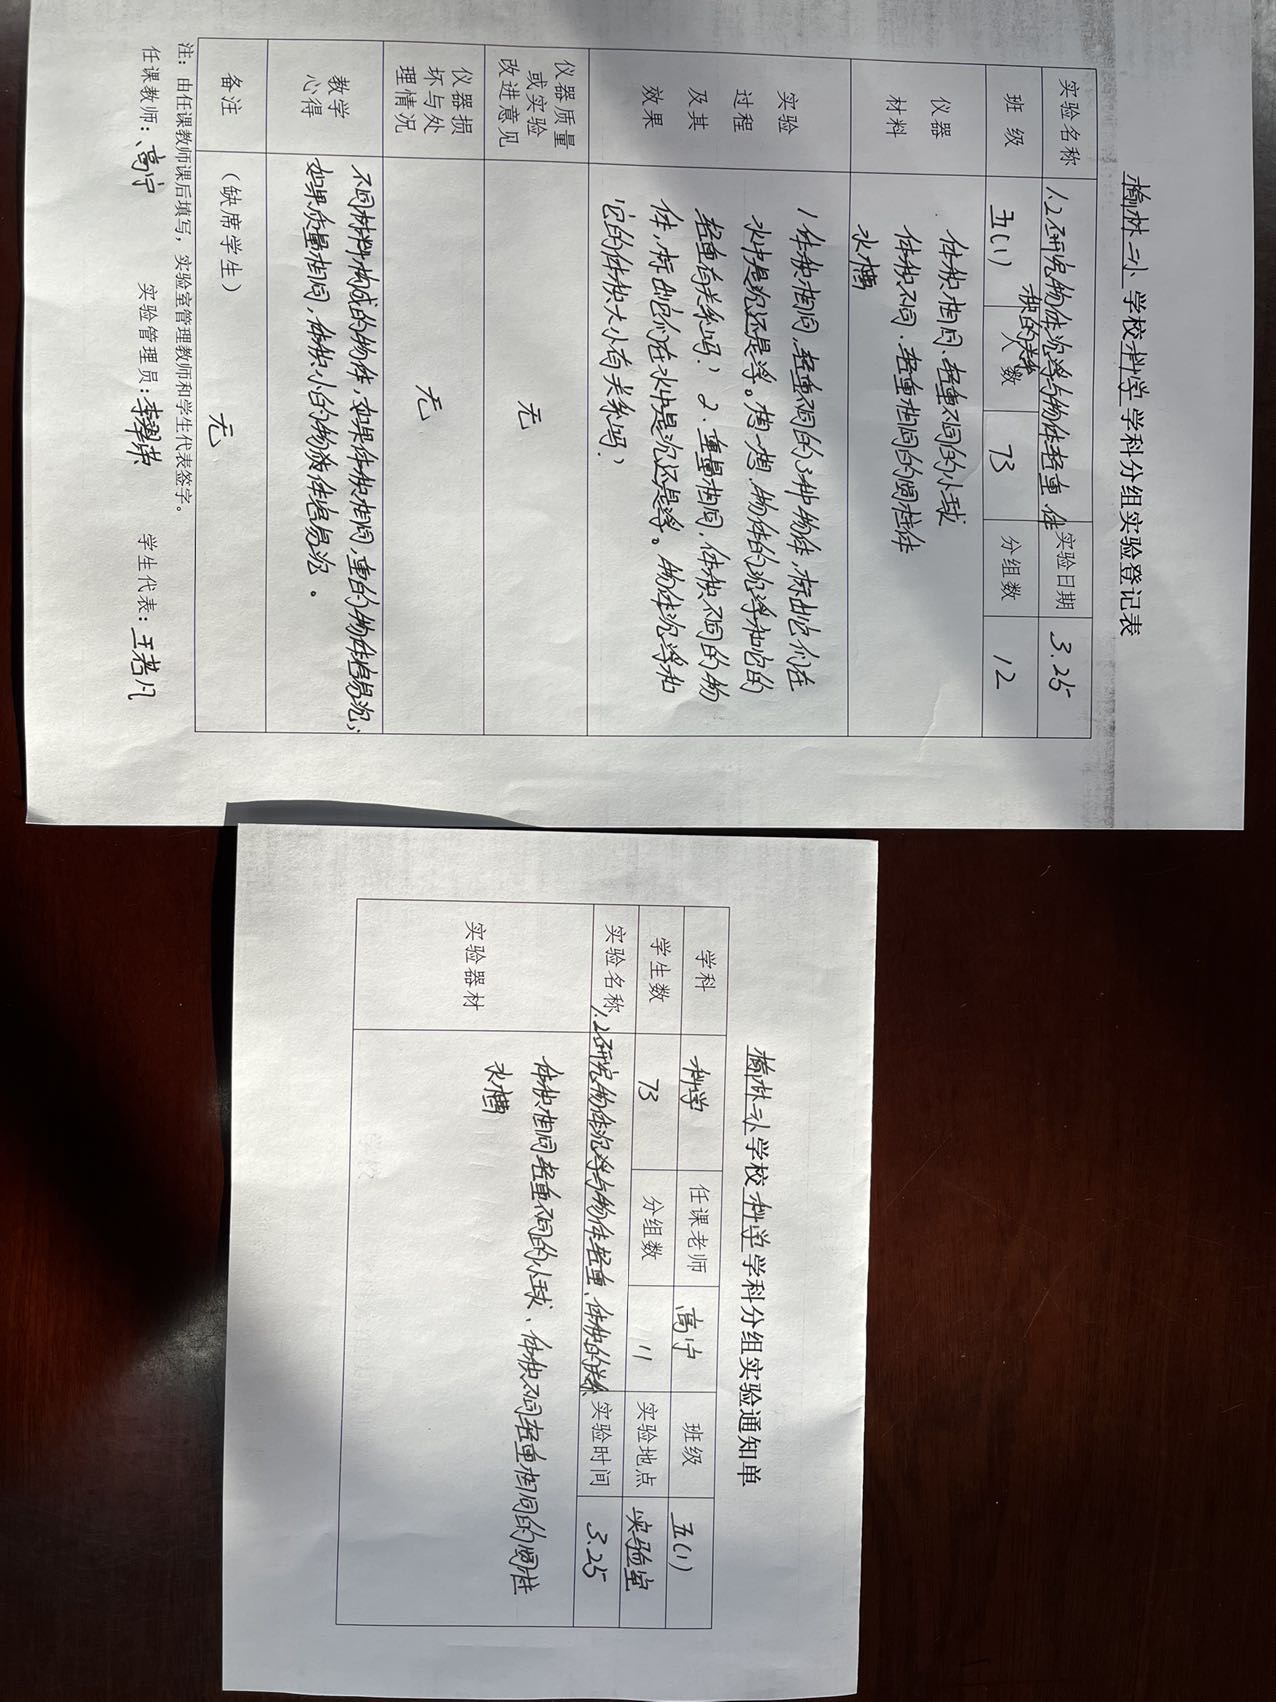 榆林二小学校科学学科分组实验登记表
实验名称 1.2研究物体沉浮与物体轻重、体积的关系 实验日期 3.25
班级 五(1) 人数 73 分组数 12
仪器材料
体积相同、轻重不同的小球
体积不同、轻重相同的圆柱体
水槽
实验过程及其效果
1 体积相同,轻重不同的3种物体,标出它们在
水中是沉还是浮。想一想,物体的沉浮和它的
轻重有关系吗? 2.重量相同,体积不同的物
体,标出它们在水中是沉还是浮。物体沉浮和
它的体积大小有关系吗?
仪器质量或实验改进意见 无
仪器损坏与处理情况 无
教学心得
不同材料构成的物体,如果体积相同,重的物体容易沉;
如果质量相同,体积小的物体容易沉。
备注 (缺席学生) 无
注:由任课教师课后填写,实验室管理教师和学生代表签字。
任课教师:高宁 实验管理员:李翠荣 学生代表:王若凡
榆林二小学校科学学科分组实验通知单
学科 科学 任课老师 高宁 班级 五(1)
学生数 73 分组数 11 实验地点 实验室
实验名称 1.2研究物体沉浮与物体轻重、体积的关系 实验时间 3.25
实验器材
体积相同轻重不同的小球、体积不同轻重相同的圆柱
水槽